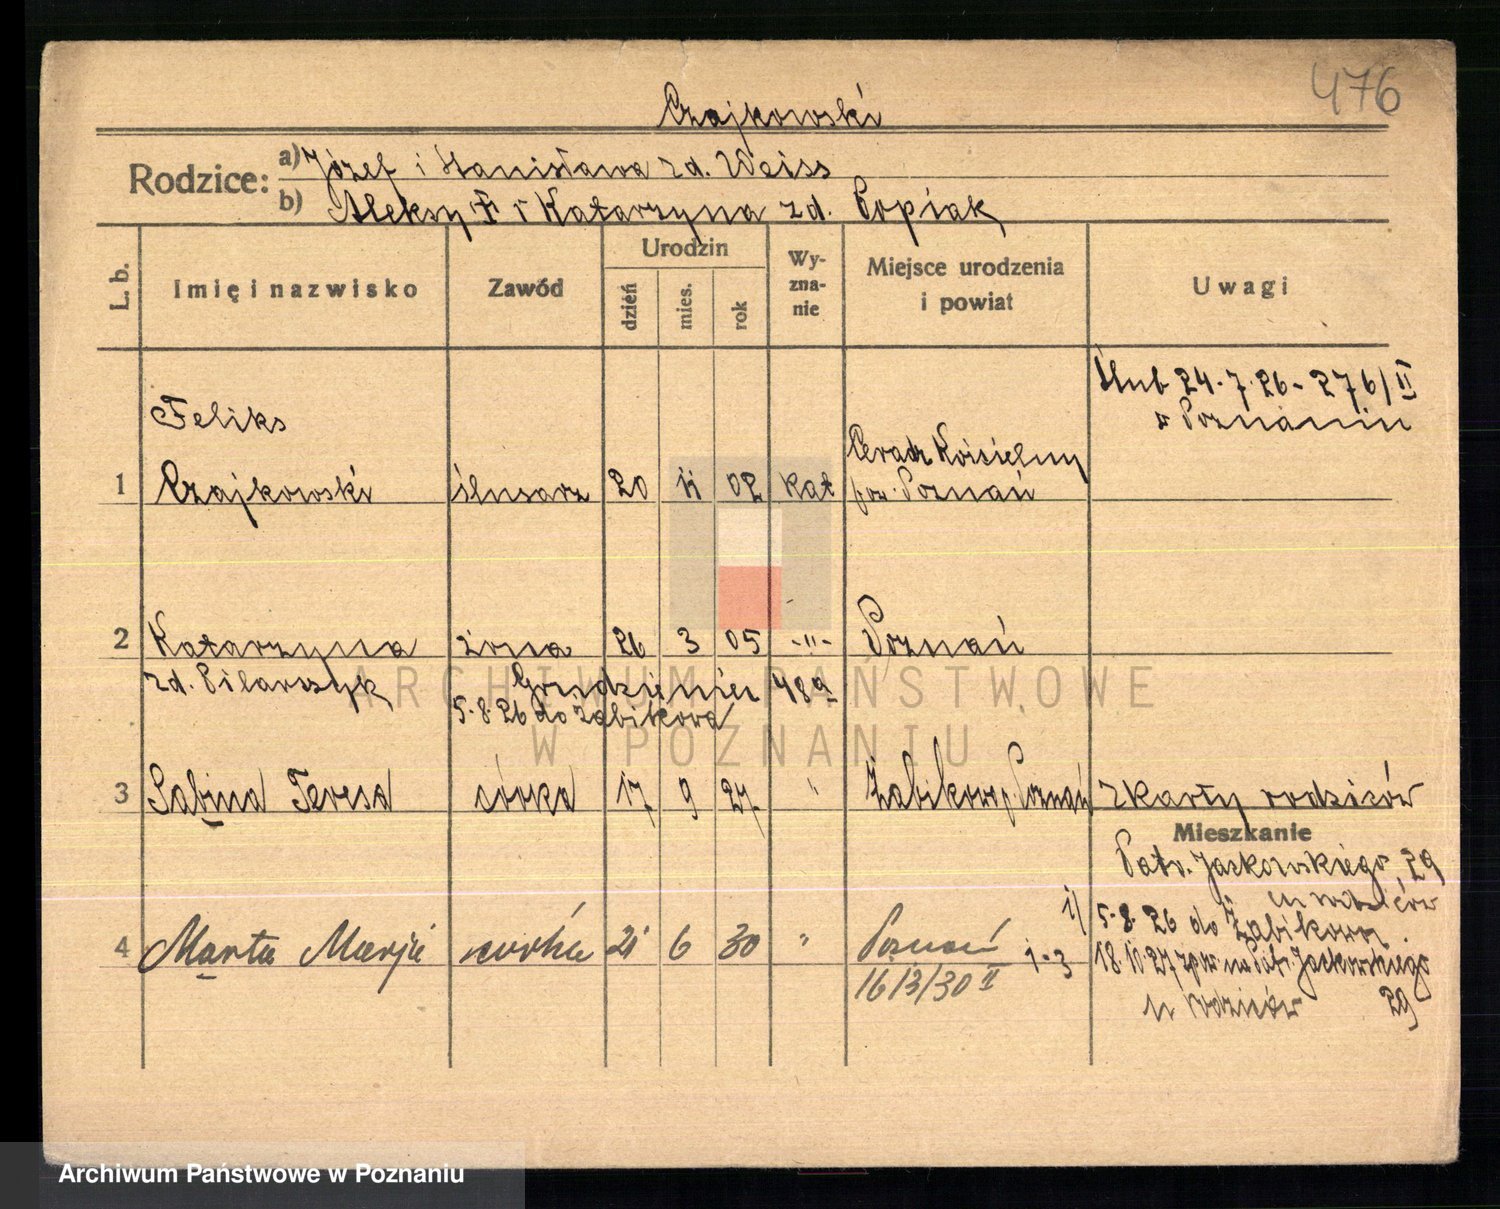 476
Czajkowski
Rodzice: a) Józef i Stanisława zd. Weiss
b) Aleksy i Katarzyna zd. Popiak
L. b. Imię i nazwisko Zawód Urodzin dzień mies. rok Wyznanie Miejsce urodzenia i powiat Uwagi
Ślub 24.7.26 - 276/II
w Poznaniu
Feliks
1 Czajkowski ślusarz 20 11 02 kat Ceradz Kościelny
pow. Poznań
2 Katarzyna żona 26 3 05 -"- Poznań
zd. Pilarczyk Grudzieniec 48a
5.8.26 do Żabikowa
3 Sabina Teresa córka 17 9 27 " Żabikowo p. Poznań z karty rodziców
Mieszkanie
Patr. Jackowskiego, 29
u rodziców
1/ 5.8.26 do Żabikowa
4 Marta Marja córka 21 6 30 " Poznań
1-3 18.10.27 z pow. na Patr. Jackowskiego
1613/30 II
u rodziców 29
ARCHIWUM PAŃSTWOWE
W POZNANIU
Archiwum Państwowe w Poznaniu